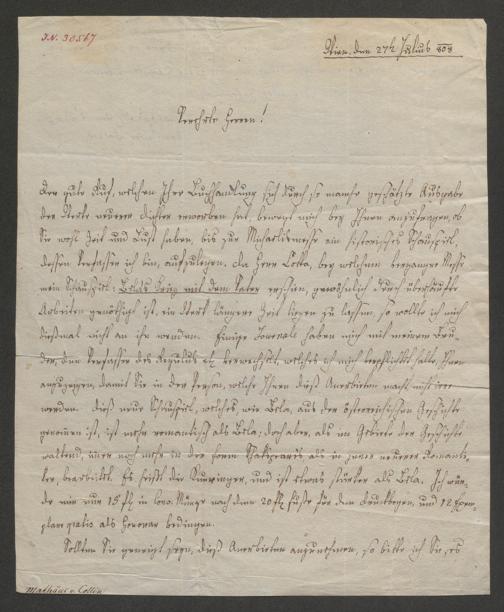 I.N. 30567
Wien, den 27t Julius 808
Verehrte Herren!
Der gute Ruf, welchen Ihre Buchhandlung sich durch so manche geschätzte Ausgabe
der Werke neuerer Dichter erworben hat, bewegt mich bey Ihnen anzufragen, ob
Sie wohl Zeit und Lust haben, bis zur Michaelismesse ein historisches Schauspiel,
dessen Verfasser ich bin, aufzulegen. Da Herr Cotta, bey welchem vergangene Messe
mein Schauspiel: Belas Krieg mit dem Vater erschien, gewöhnlich durch überhäufte
Arbeiten genöthigt ist, ein Werk längere Zeit liegen zu lassen, so wollte ich mich
dießmal nicht an ihn wenden. Einige Journale haben mich mit meinem Bru-
der, dem Verfasser des Regulus verwechselt, welches ich mich verpflichtet halte, Ihnen
anzuzeigen, damit Sie in der Person, welche Ihnen dieß Anerbieten macht nicht irre
werden. Dieß neue Schauspiel, welches, wie Bela, aus der österreichischen Geschichte
genommen ist, ist mehr romantisch als Bela; doch aber, als im Gebiete der Geschichte
waltend, mehr noch in der Form Shakspeares als in jener neuerer Romanti-
ker, bearbeitet. Es heißt die Kuenringer, und ist etwas stärker als Bela. Ich wür-
de mir nur 15 fl in Conv. Münze nach dem 20 fl Fuße für den Druckbogen, und 12 Exem-
plare gratis als Honorar bedingen.
Sollten Sie geneigt seyn, dieß Anerbieten anzunehmen, so bitte ich Sie, es
Mathäus v. Collin